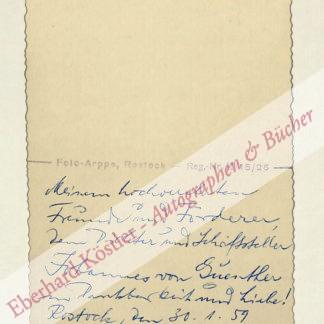 Foto-Arppe, Rostock — Reg.-Nr. 1445/26
Meinem hochverehrten
Freunde und Förderer,
dem Dichter und Schriftsteller
Johannes von Guenther
in Dankbarkeit und Liebe!
Rostock, den 30.1.59
Eberhard Köstler - Autographen & Bücher